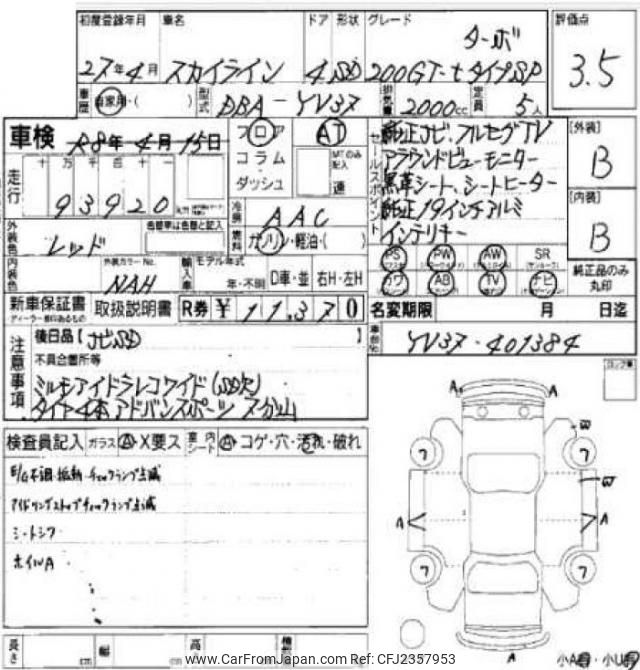 初度登録年月 車名 ドア 形状 グレード 評価点
27年4月 スカイライン 4 SD ターボ 200GT-t タイプSP 3.5
車歴 自家用・( ) 型式 DBA-YV37 排気量 2000cc 定員 5人
車検 R8年4月15日 フロア コラム・ダッシュ AT MTのみ記入 速
セールスポイント
純正ナビ.フルセグTV
アラウンドビューモニター
黒革シート、シートヒーター
純正19インチアルミ
インテリキー
[外装] B
[内装] B
走行 十 万 千 百 十 一
93920
冷房 AAC
燃料 ガソリン・軽油・( )
外装色 レッド 色替車は色番と記入
内装色 外装カラーNo. NAH 輸入車 モデル年式 年・不明 D車・並 右H・左H
PS PW AW SR
カワ AB TV ナビ
純正品のみ丸印
新車保証書 取扱説明書 R券 ¥ 11370
名変期限 月 日迄
車台No. YV37-401384
注意事項
後日品【ナビSD 】
不具合箇所等
ミルモアイドラレコワイド(SD欠)
タイヤ4本アドバンスポーツ 7分山
検査員記入 ガラス A・X要ス 室内シート A・コゲ・穴・汚れ・破れ
E/G不調・振動・チェックランプ点滅
アイドリングストップチェックランプ点滅
シートシワ
ホイルA
A A
W
フ フ
W
A A
フ フ
A
小A・小U
長さ cm 幅 cm 高
www.CarFromJapan.com Ref: CFJ2357953